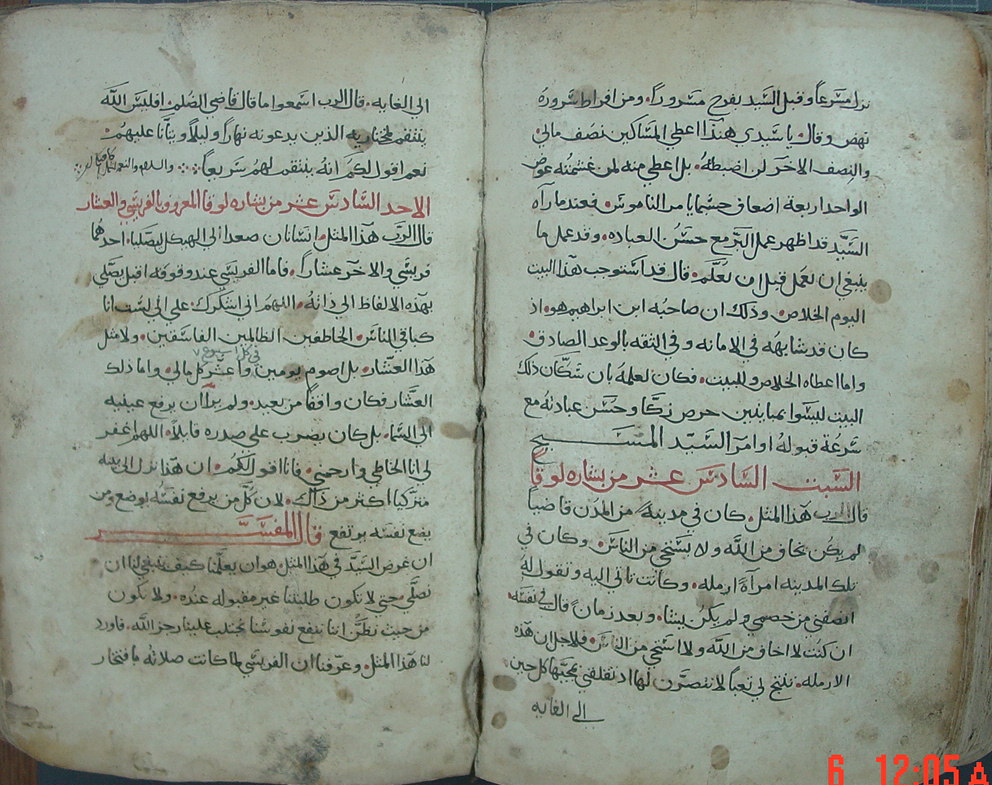 نزل مسرعاً وقبل السَّيد بفرح مسروراً، ومن افراط سروره
نهض وقال يا سيدي هنذا اعطي المساكين نصف مالي
والنصف الاخر لن اضبطه، بل اعطي منه لمن غشمته عوض
الواحد اربعة اضعاف حسبما يامر الناموس، فعندما رآه
السَّيّد قد اظهر عمل البرّ مع حسن العباده، وقد عمل ما
ينبغي ان يعمل قبل ان يعلَّم، قال قد استوجب هذا البيت
اليوم الخلاص، وذلك ان صاحبه ابن ابراهيم هو، اذ
كان قد شابهه في الامانه وفي الثقه بالوعد الصادق
واما اعطاه الخلاص وللبيت، فكان لعلمه بان سكّان ذلك
البيت ليسوا بمباينين حرص زكّا وحسن عبادته مع
سرعة قبوله اوامر السيّد المسيح
السبت السادس عشر من بشاره لوقا
قال الرب هذا المثل، كان في مدينة من المدن قاضياً
لم يكن يخاف من اللَّه ولا يستحي من الناس، وكان في
تلك المدينه امرآةً ارمله، وكانت تاتي اليه وتقول له
انصفني من خصمي ولم يكن يشا، وبعد زمان قال في نفسه،
ان كنت لا اخاف من اللَّه ولا استحي من الناس، فلاجل ان هذه
الارمله، تنتج لي تعباً لانتصرن لها اذ تقلقني بمجيّها كل حين
الى الغايه
الى الغايه، قال الرب اسمعوا ما قال قاضي الظلم، افليس اللَّه
ينتقم لمختاريه الذين يدعونه نهاراً وليلاً ويتآنا عليهم،
نعم اقول لكم انه ينتقم لهم سريعاً
الاحد السادس عشر من بشاره لوقا المعروف بالفريسي والعشار
قال الرب هذا المثل، انسانان صعدا الى الهيكل ليصليا، احدهما
فريسي والاخر عشاراً، فاما الفريسي عند وقوفه اقبل يصلي
بهذه الالفاظ الى ذاته، اللهم اني اشكرك، على اني لست انا
كباقي الناس، الخاطفين، الظالمين، الفاسقين، ولا مثل
في كل اسبوع
هذا العشّار، بل اصوم يومين واعشر كل مالي، واما ذلك
العشَّار فكان واقفاً من بعيد، ولم يرد ان يرفع عينيه
الى السَّما، بل كان يضرب على صدره قايلاً، اللهم اغفر
لي انا الخاطي وارحمني، فانا اقول لكم، ان هذا نزل الى بيته
متزكيا اكثر من ذاك، لان كل من يرفع نفسه يوضع ومن
يضع نفسه يرتفع قال المفسّر
ان غرض السيَّد في هذا المثل هو ان يعلّمنا كيف ينبغي لنا ان
نصلّي، حتى لا تكون طلبتنا غير مقبوله عنده، ولا نكون
من حيث نظن اننا ننفع نفوسنا نجتلب علينا رجز اللَّه، فاورد
لنا هذا المثل، وعرّفنا ان الفريسي لما كانت صلاته بافتخار